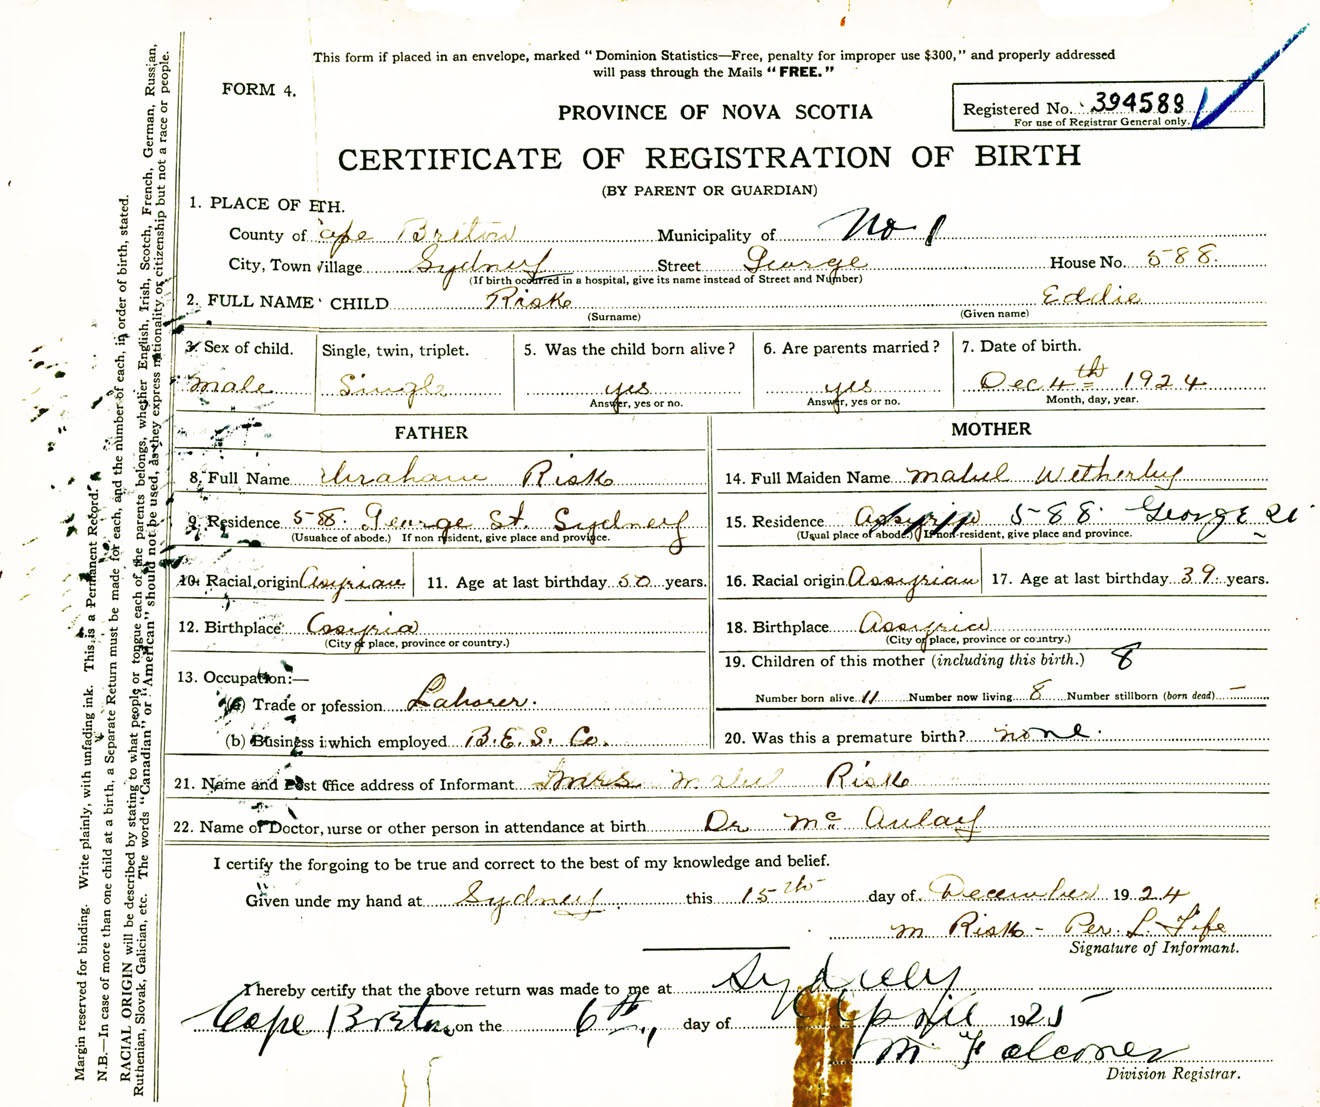 This form if placed in an envelope, marked "Dominion Statistics—Free, penalty for improper use $300," and properly addressed
will pass through the Mails "FREE."
FORM 4.
PROVINCE OF NOVA SCOTIA
Registered No. 394588
For use of Registrar General only.
CERTIFICATE OF REGISTRATION OF BIRTH
(BY PARENT OR GUARDIAN)
1. PLACE OF BTH.
County of ape Breton Municipality of No 1
City, Town Village Sydney Street George House No. 588.
(If birth occurred in a hospital, give its name instead of Street and Number)
2. FULL NAME CHILD Risk Eddie
(Surname) (Given name)
3. Sex of child. Single, twin, triplet. 5. Was the child born alive? 6. Are parents married? 7. Date of birth.
Male Single yes yes Dec 4th 1924
Answer, yes or no. Answer, yes or no. Month, day, year.
FATHER MOTHER
8. Full Name Risk 14. Full Maiden Name Mabel Wetherby
9. Residence 58. George St. Sydney 15. Residence Assyria 588. George St
(Usual place of abode.) If non resident, give place and province. (Usual place of abode.) If non-resident, give place and province.
10. Racial origin Assyrian 11. Age at last birthday 50 years. 16. Racial origin Assyrian 17. Age at last birthday 39 years.
12. Birthplace Assyria 18. Birthplace Assyria
(City or place, province or country.) (City or place, province or country.)
19. Children of this mother (including this birth.) 8
13. Occupation:—
(a) Trade or pofession Laborer. Number born alive 11 Number now living 8 Number stillborn (born dead) —
(b) Business i which employed B.E.S. Co. 20. Was this a premature birth? none.
21. Name and Post Office address of Informant Mrs Mabel Risk
22. Name of Doctor, nurse or other person in attendance at birth Dr McAulay
I certify the forgoing to be true and correct to the best of my knowledge and belief.
Given under my hand at Sydney this 15th day of December 1924
M Risk - Per. L. Fife
Signature of Informant.
I hereby certify that the above return was made to me at Sydney
Cape Breton on the 6th, day of April 1925
M Falconer
Division Registrar.
Margin reserved for binding. Write plainly, with unfading ink. This is a Permanent Record.
N.B.—In case of more than one child at a birth, a Separate Return must be made for each, and the number of each, in order of birth, stated.
RACIAL ORIGIN will be described by stating to what people or tongue each of the parents belongs, whether English, Irish, Scotch, French, German, Russian,
Ruthenian, Slovak, Galician, etc. The words "Canadian" or "American" should not be used, as they express nationality or citizenship but not a race or people.